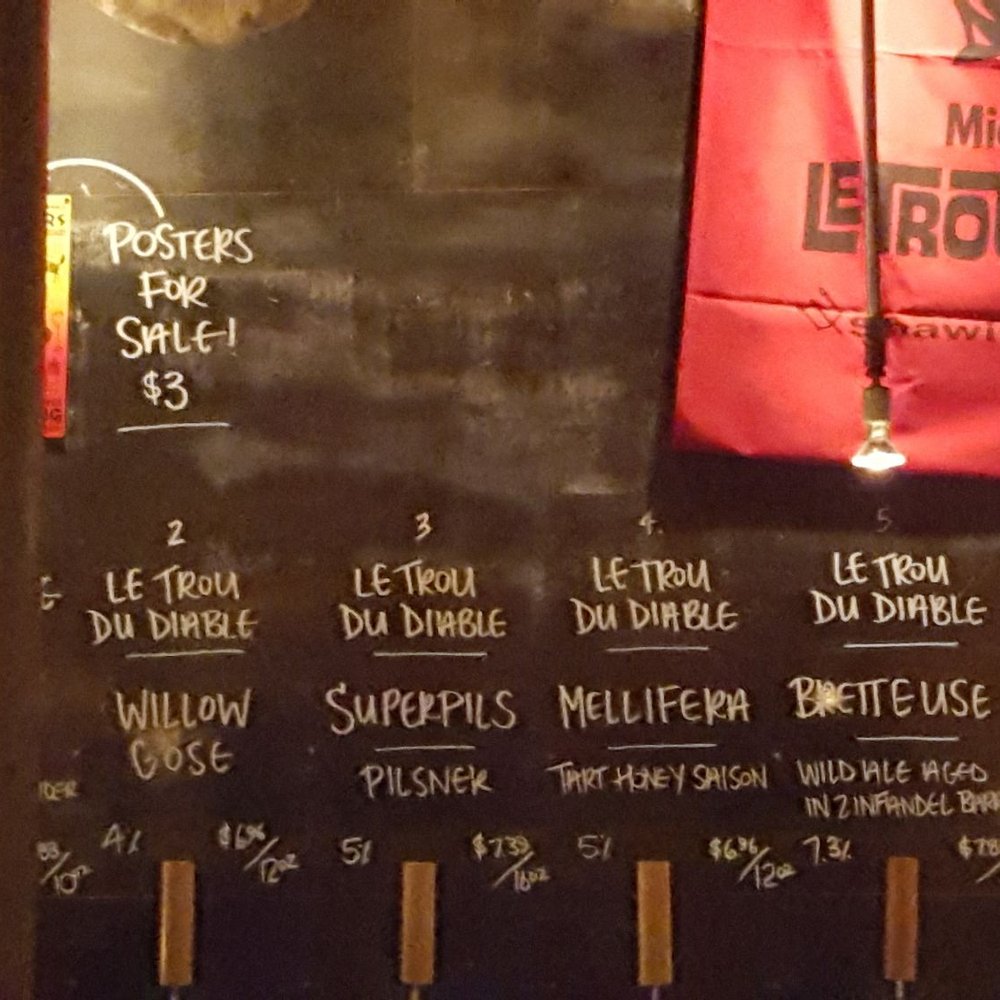 POSTERS
FOR
SALE!
$3
Mic
LE TROU
Shawi
2
LE TROU
DU DIABLE
WILLOW
GOSE
4%
$6.96/12oz
3
LE TROU
DU DIABLE
SUPERPILS
PILSNER
5%
$7.39/16oz
4.
LE TROU
DU DIABLE
MELLIFERA
TART HONEY SAISON
5%
$6.96/12oz
5.
LE TROU
DU DIABLE
BRETTEUSE
WILD ALE AGED
IN ZINFANDEL BARR
7.3%